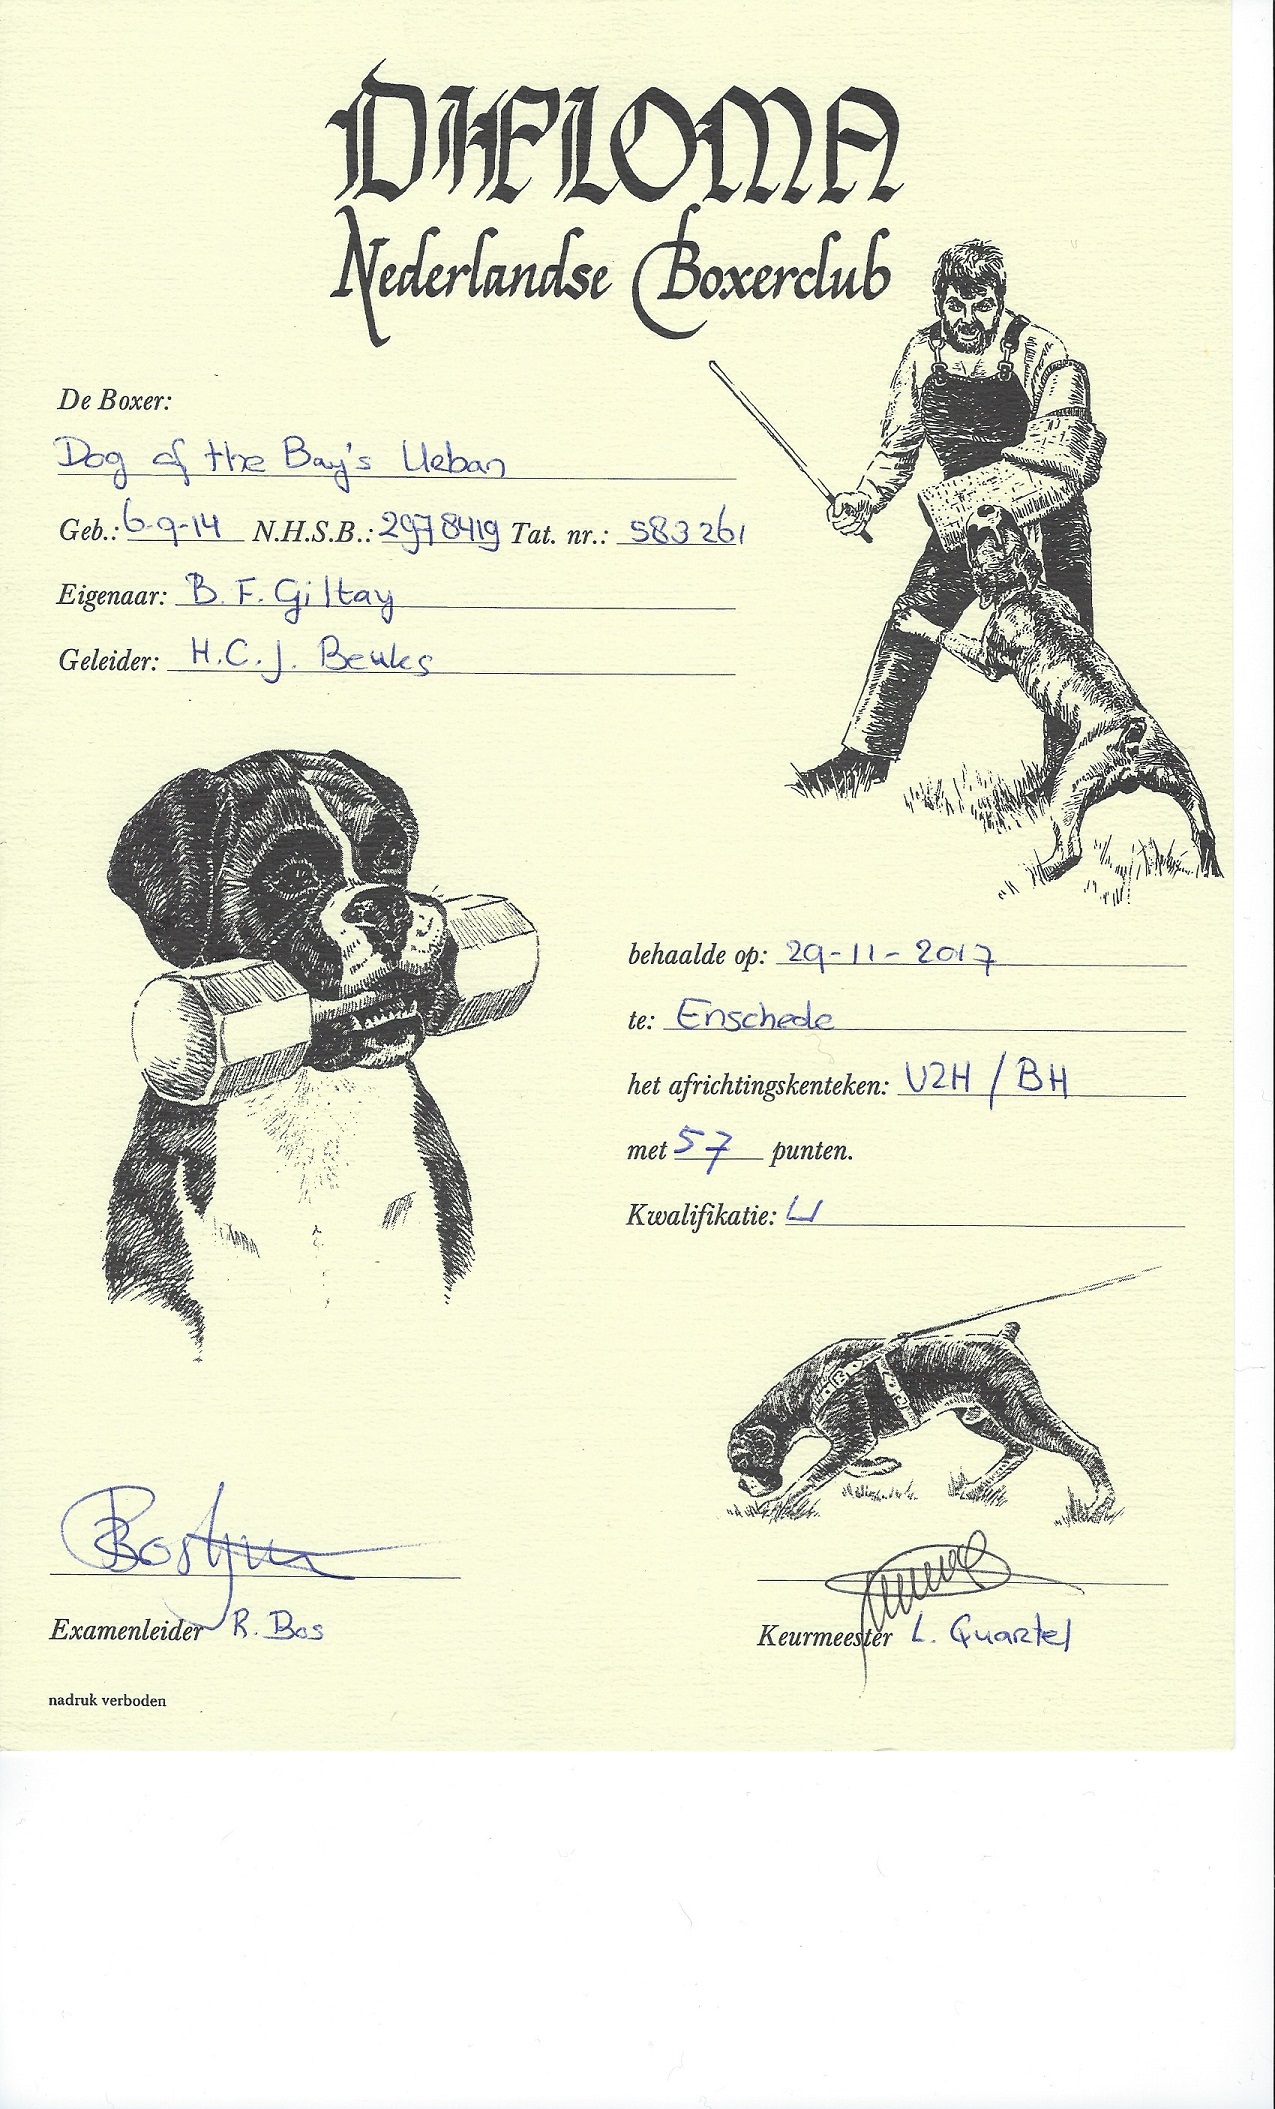 DIPLOMA
Nederlandse Boxerclub
De Boxer:
Dog of the Bay's Ueban
Geb.: 6-9-14 N.H.S.B.: 2978419 Tat. nr.: 583261
Eigenaar: B. F. Giltay
Geleider: H.C.J. Beuks
behaalde op: 29-11-2017
te: Enschede
het africhtingskenteken: VZH / BH
met 57 punten.
Kwalifikatie: U
Examenleider R. Bos
Keurmeester L. Quartel
nadruk verboden